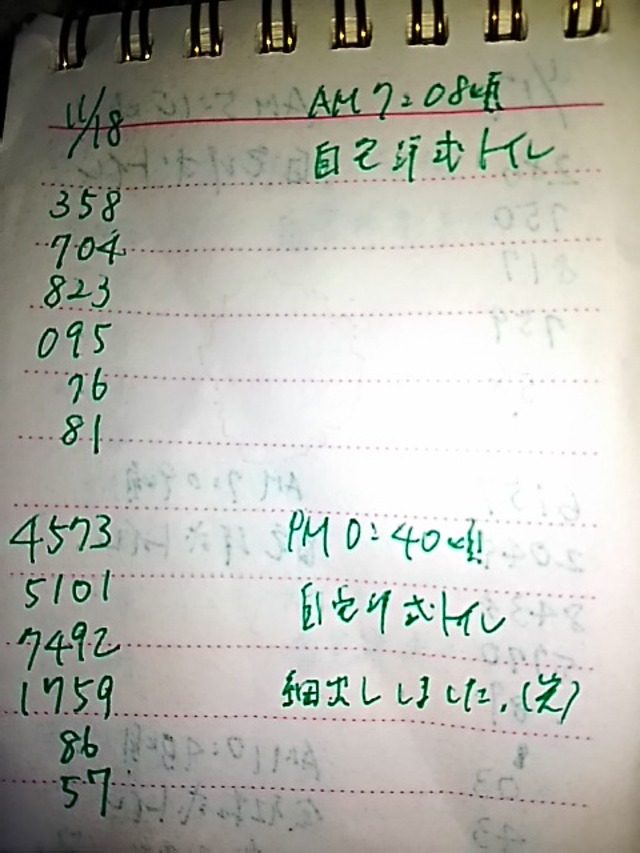 11/18 AM 7:08頃
自宅洋式トイレ
358
704
823
095
76
81
4573 PM 0:40頃
5101 自宅洋式トイレ
7492
1759 細出ししました.(笑)
86
57